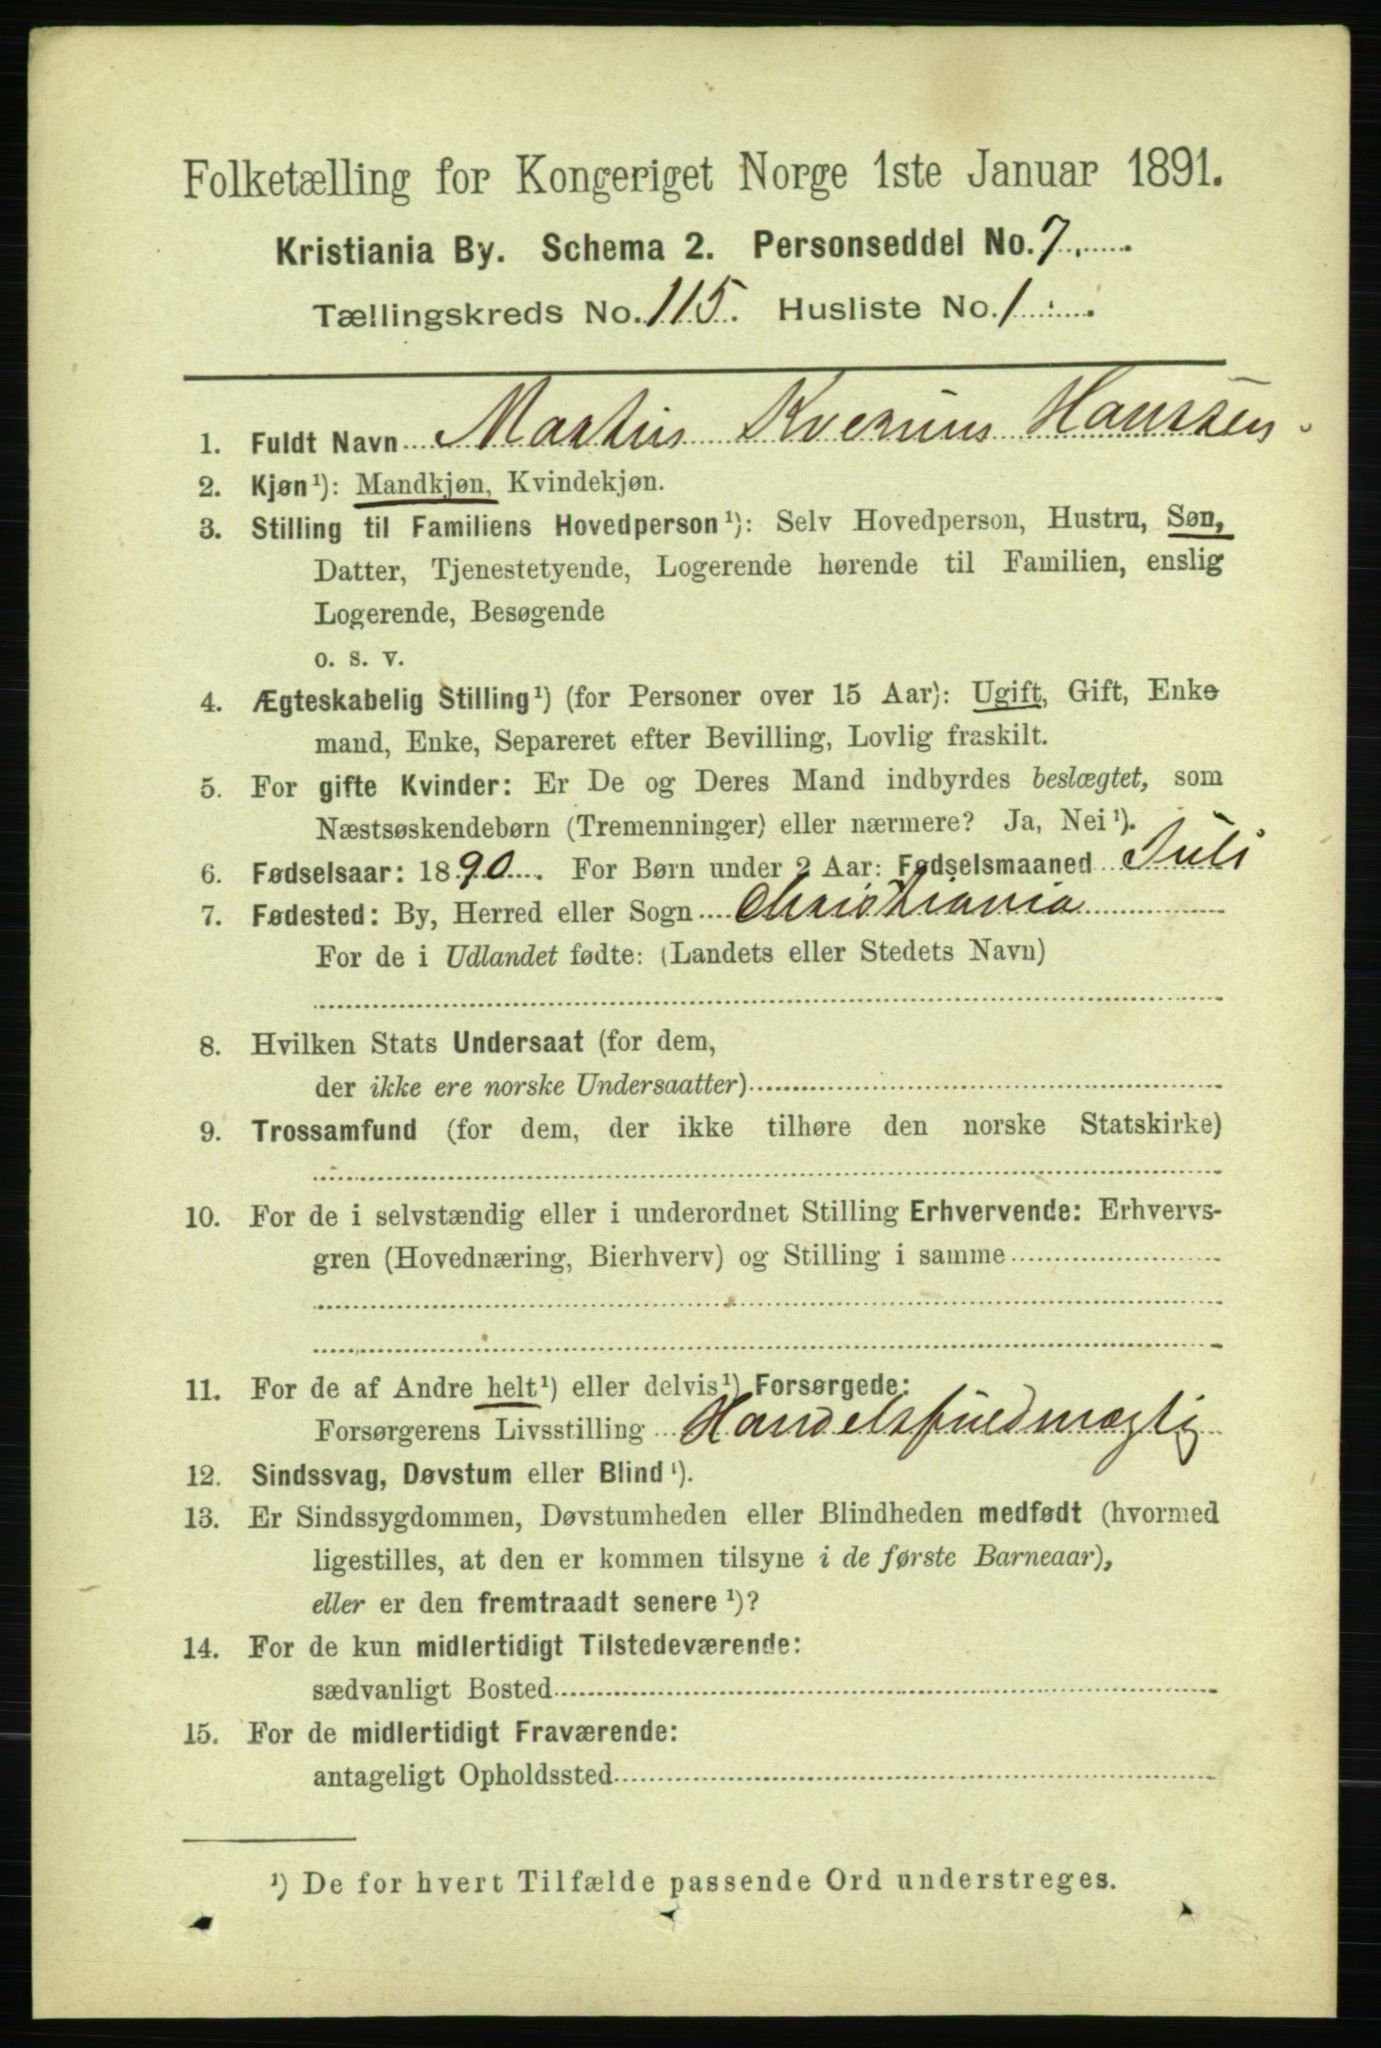 Folketælling for Kongeriget Norge 1ste Januar 1891.
Kristiania By. Schema 2. Personseddel No. 7
Tællingskreds No. 115. Husliste No. 1
1. Fuldt Navn Martin Hanssen
2. Kjøn¹): Mandkjøn, Kvindekjøn.
3. Stilling til Familiens Hovedperson¹): Selv Hovedperson, Hustru, Søn,
Datter, Tjenestetyende, Logerende hørende til Familien, enslig
Logerende, Besøgende
o. s. v.
4. Ægteskabelig Stilling¹) (for Personer over 15 Aar): Ugift, Gift, Enke
mand, Enke, Separeret efter Bevilling, Lovlig fraskilt.
5. For gifte Kvinder: Er De og Deres Mand indbyrdes beslægtet, som
Næstsøskendebørn (Tremenninger) eller nærmere? Ja, Nei¹).
6. Fødselsaar: 1890. For Børn under 2 Aar: Fødselsmaaned Juli
7. Fødested: By, Herred eller Sogn Christiania
For de i Udlandet fødte: (Landets eller Stedets Navn)
8. Hvilken Stats Undersaat (for dem,
der ikke ere norske Undersaatter)
9. Trossamfund (for dem, der ikke tilhøre den norske Statskirke)
10. For de i selvstændig eller i underordnet Stilling Erhvervende: Erhvervs-
gren (Hovednæring, Bierhverv) og Stilling i samme
11. For de af Andre helt¹) eller delvis¹) Forsørgede:
Forsørgerens Livsstilling Handelsfuldmægtig
12. Sindssvag, Døvstum eller Blind¹).
13. Er Sindssygdommen, Døvstumheden eller Blindheden medfødt (hvormed
ligestilles, at den er kommen tilsyne i de første Barneaar),
eller er den fremtraadt senere¹)?
14. For de kun midlertidigt Tilstedeværende:
sædvanligt Bosted
15. For de midlertidigt Fraværende:
antageligt Opholdssted
¹) De for hvert Tilfælde passende Ord understreges.